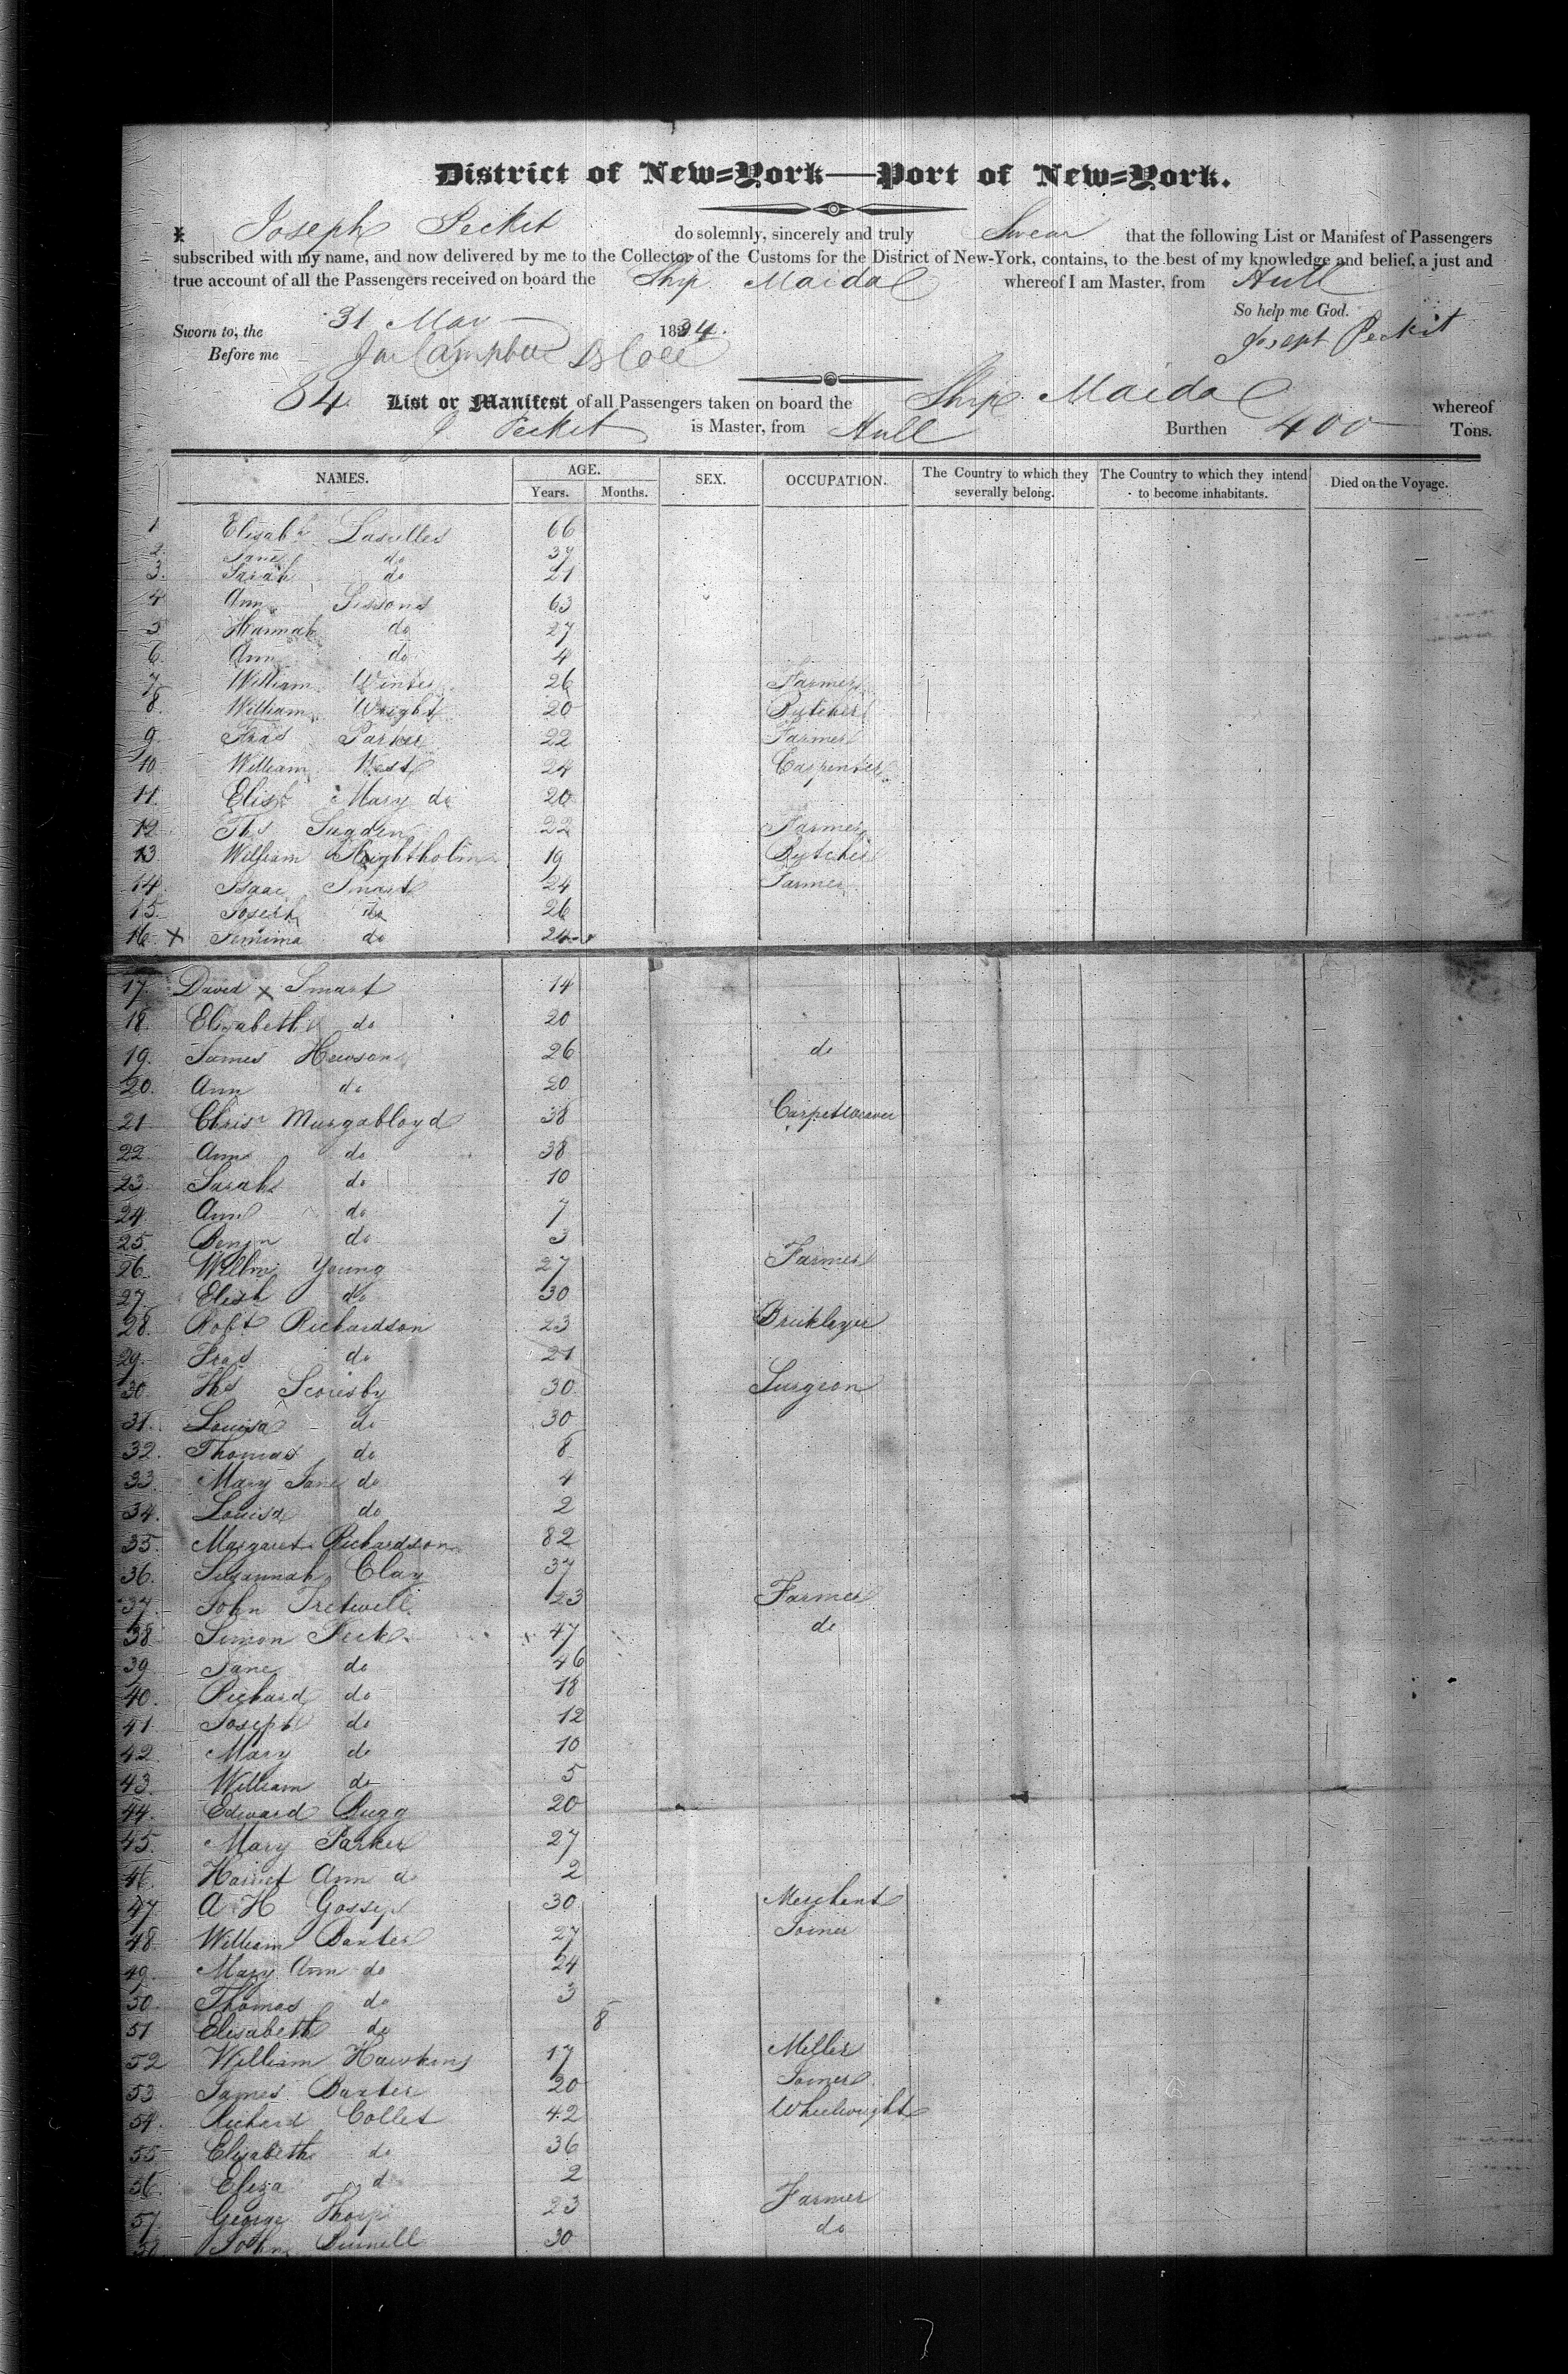 District of New=York—Port of New=York.
I Joseph Pecket do solemnly, sincerely and truly Swear that the following List or Manifest of Passengers
subscribed with my name, and now delivered by me to the Collector of the Customs for the District of New-York, contains, to the best of my knowledge and belief, a just and
true account of all the Passengers received on board the Ship Maida whereof I am Master, from Hull
So help me God.
Sworn to, the 31 May 1834. Joseph Peckit
Before me Jas Campbell D Coll
84 List or Manifest of all Passengers taken on board the Ship Maida whereof
J Pecket is Master, from Hull Burthen 400 Tons.
NAMES. AGE. SEX. OCCUPATION. The Country to which they severally belong. The Country to which they intend to become inhabitants. Died on the Voyage.
Years. Months.
1 Elisabh Lascelles 66
2. Jane do 37
3. Sarah do 21
4 Ann Sissons 63
5 Hannah do 27
6. Ann do 4
7. William Winter 26 Farmer
8. William Wright 20 Butcher
9. Fras Parker 22 Farmer
10 William West 24 Carpenter
11. Elisth Mary do 20
12. Ths Sugden 22 Farmer
13 William Knightholm 19 Butcher
14. Isaac Smart 24 Farmer
15. Joseph do 26
16. x Jemima do 24
17. David x Smart 14
18. Elisabeth do 20
19. James Hewson 26 do
20. Ann do 20
21 Chrisr Murgabloyd 38 Carpetweaver
22 Ann do 38
23. Sarah do 10
24. Ann do 7
25. Benjn do 3
26. Willm Young 27 Farmer
27. Elisth do 30
28. Robt Richardson 23 Bricklayer
29. Fras do 21
30. Ths Scoresby 30 Surgeon
31. Louisa do 30
32. Thomas do 8
33. Mary Jane do 4
34. Louisa do 2
35. Margaret Richardson 82
36. Susannah Clay 37
37. John Tretwell 23 Farmer
38 Simon Peck 47 do
39 Jane do 46
40. Richard do 18
41. Joseph do 12
42. Mary do 10
43. William do 5
44. Edward Rugg 20
45. Mary Parker 27
46. Harriet Ann do 2
47. A H Gossip 30 Merchant
48. William Baxter 27 Joiner
49. Mary Ann do 24
50. Thomas do 3
51 Elisabeth do 8
52 William Hawkins 17 Miller
53 James Baxter 20 Joiner
54. Richard Collet 42 Wheelwright
55 Elisabeth do 36
56. Eliza do 2
57. George Thorp 23 Farmer
John 30 do